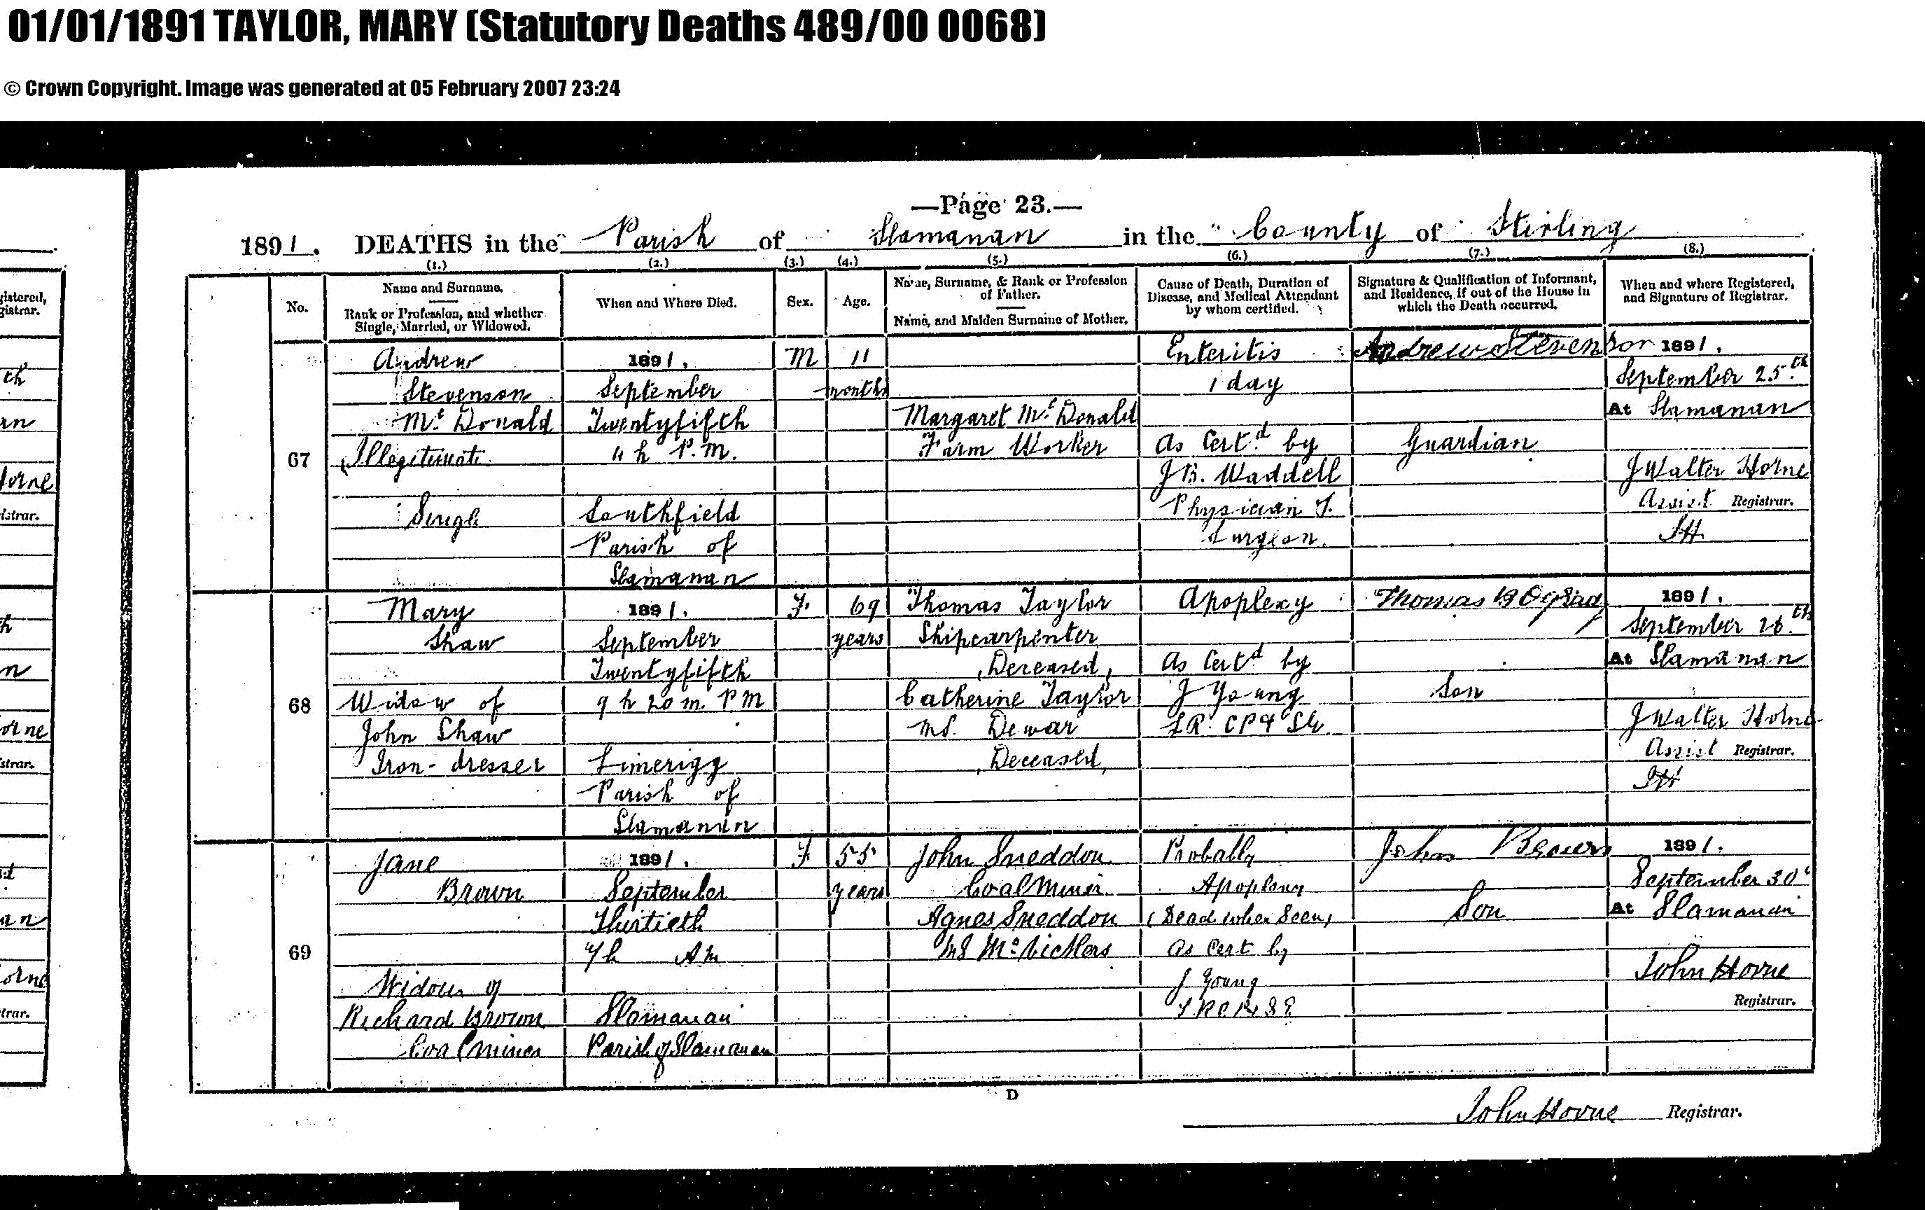 01/01/1891 TAYLOR, MARY (Statutory Deaths 489/00 0068)
© Crown Copyright. Image was generated at 05 February 2007 23:24
—Page 23.—
1891. DEATHS in the Parish of Slamanan in the County of Stirling
(1.) (2.) (3.) (4.) (5.) (6.) (7.) (8.)
No.
Name and Surname.
Rank or Profession, and whether
Single, Married, or Widowed.
When and Where Died.
Sex.
Age.
Name, Surname, & Rank or Profession
of Father.
Name, and Maiden Surname of Mother.
Cause of Death, Duration of
Disease, and Medical Attendant
by whom certified.
Signature & Qualification of Informant,
and Residence, if out of the House in
which the Death occurred.
When and where Registered,
and Signature of Registrar.
67
Andrew
Stevenson
Mc Donald
(Illegitimate
Single
1891.
September
Twentyfifth
4 h P.M.
Southfield
Parish of
Slamanan
M
11
months
Margaret McDonald
Farm Worker
Enteritis
1 day
As Certd by
J B. Waddell
Physician &
Surgeon.
Andrew Stevenson
Guardian
1891.
September 25th
At Slamanan
J Walter Horne
Assist Registrar.
JH
68
Mary
Shaw
Widow of
John Shaw
Iron-dresser
1891.
September
Twentyfifth
9 h 20 m P M
Limerigg
Parish of
Slamanan
F.
69
years
Thomas Taylor
Shipcarpenter
(Deceased)
Catherine Taylor
MS. Dewar
(Deceased)
Apoplexy
As Certd by
J Young
Thomas
Son
1891.
September 26th
At Slamanan
J Walter Horne
Assist Registrar.
JH
69
Jane
Brown
Widow of
Richard Brown
Coal miner
1891.
September
Thirtieth
h AM
Slamanan
Parish of Slamanan
F
55
years
John Sneddon
Coal Miner
Agnes Sneddon
MS
Probably
Apoplexy
(Dead when Seen)
as Cert by
J Young
John Brown
Son
1891.
September 30th
At Slamanan
John Horne
Registrar.
D
John Horne Registrar.